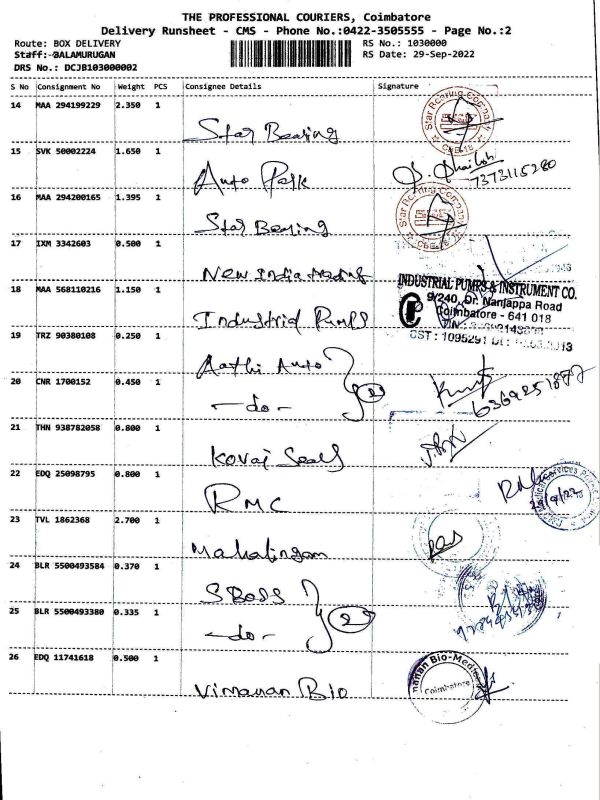 THE PROFESSIONAL COURIERS, Coimbatore
Delivery Runsheet - CMS - Phone No.:0422-3505555 - Page No.:2
Route: BOX DELIVERY
RS No.: 1030000
Staff: BALAMURUGAN
RS Date: 29-Sep-2022
DRS No.: DCJB103000002
S No Consignment No Weight PCS Consignee Details Signature
14 MAA 294199229 2.350 1
Star Bearing
15 SVK 50002224 1.650 1
Auto Park
7373115280
16 MAA 294200165 1.395 1
Star Bearing
17 IXM 3342603 0.500 1
New India trading
18 MAA 568110216 1.150 1
Industrial Pumps
INDUSTRIAL PUMPS & INSTRUMENT CO.
9/240, Dr. Nanjappa Road
Coimbatore - 641 018
19 TRZ 90380108 0.250 1
Aathi Auto
20 CNR 1700152 0.450 1
-do- 2
6369251877
21 THN 938782058 0.800 1
Kovai Seals
22 EDQ 25098795 0.800 1
RMC
23 TVL 1862368 2.700 1
Mahalingam
24 BLR 5500493584 0.370 1
S Boss
25 BLR 5500493380 0.335 1
-do- 2
26 EDQ 11741618 0.500 1
Vimanan Bio
manan Bio-Medic
Coimbatore